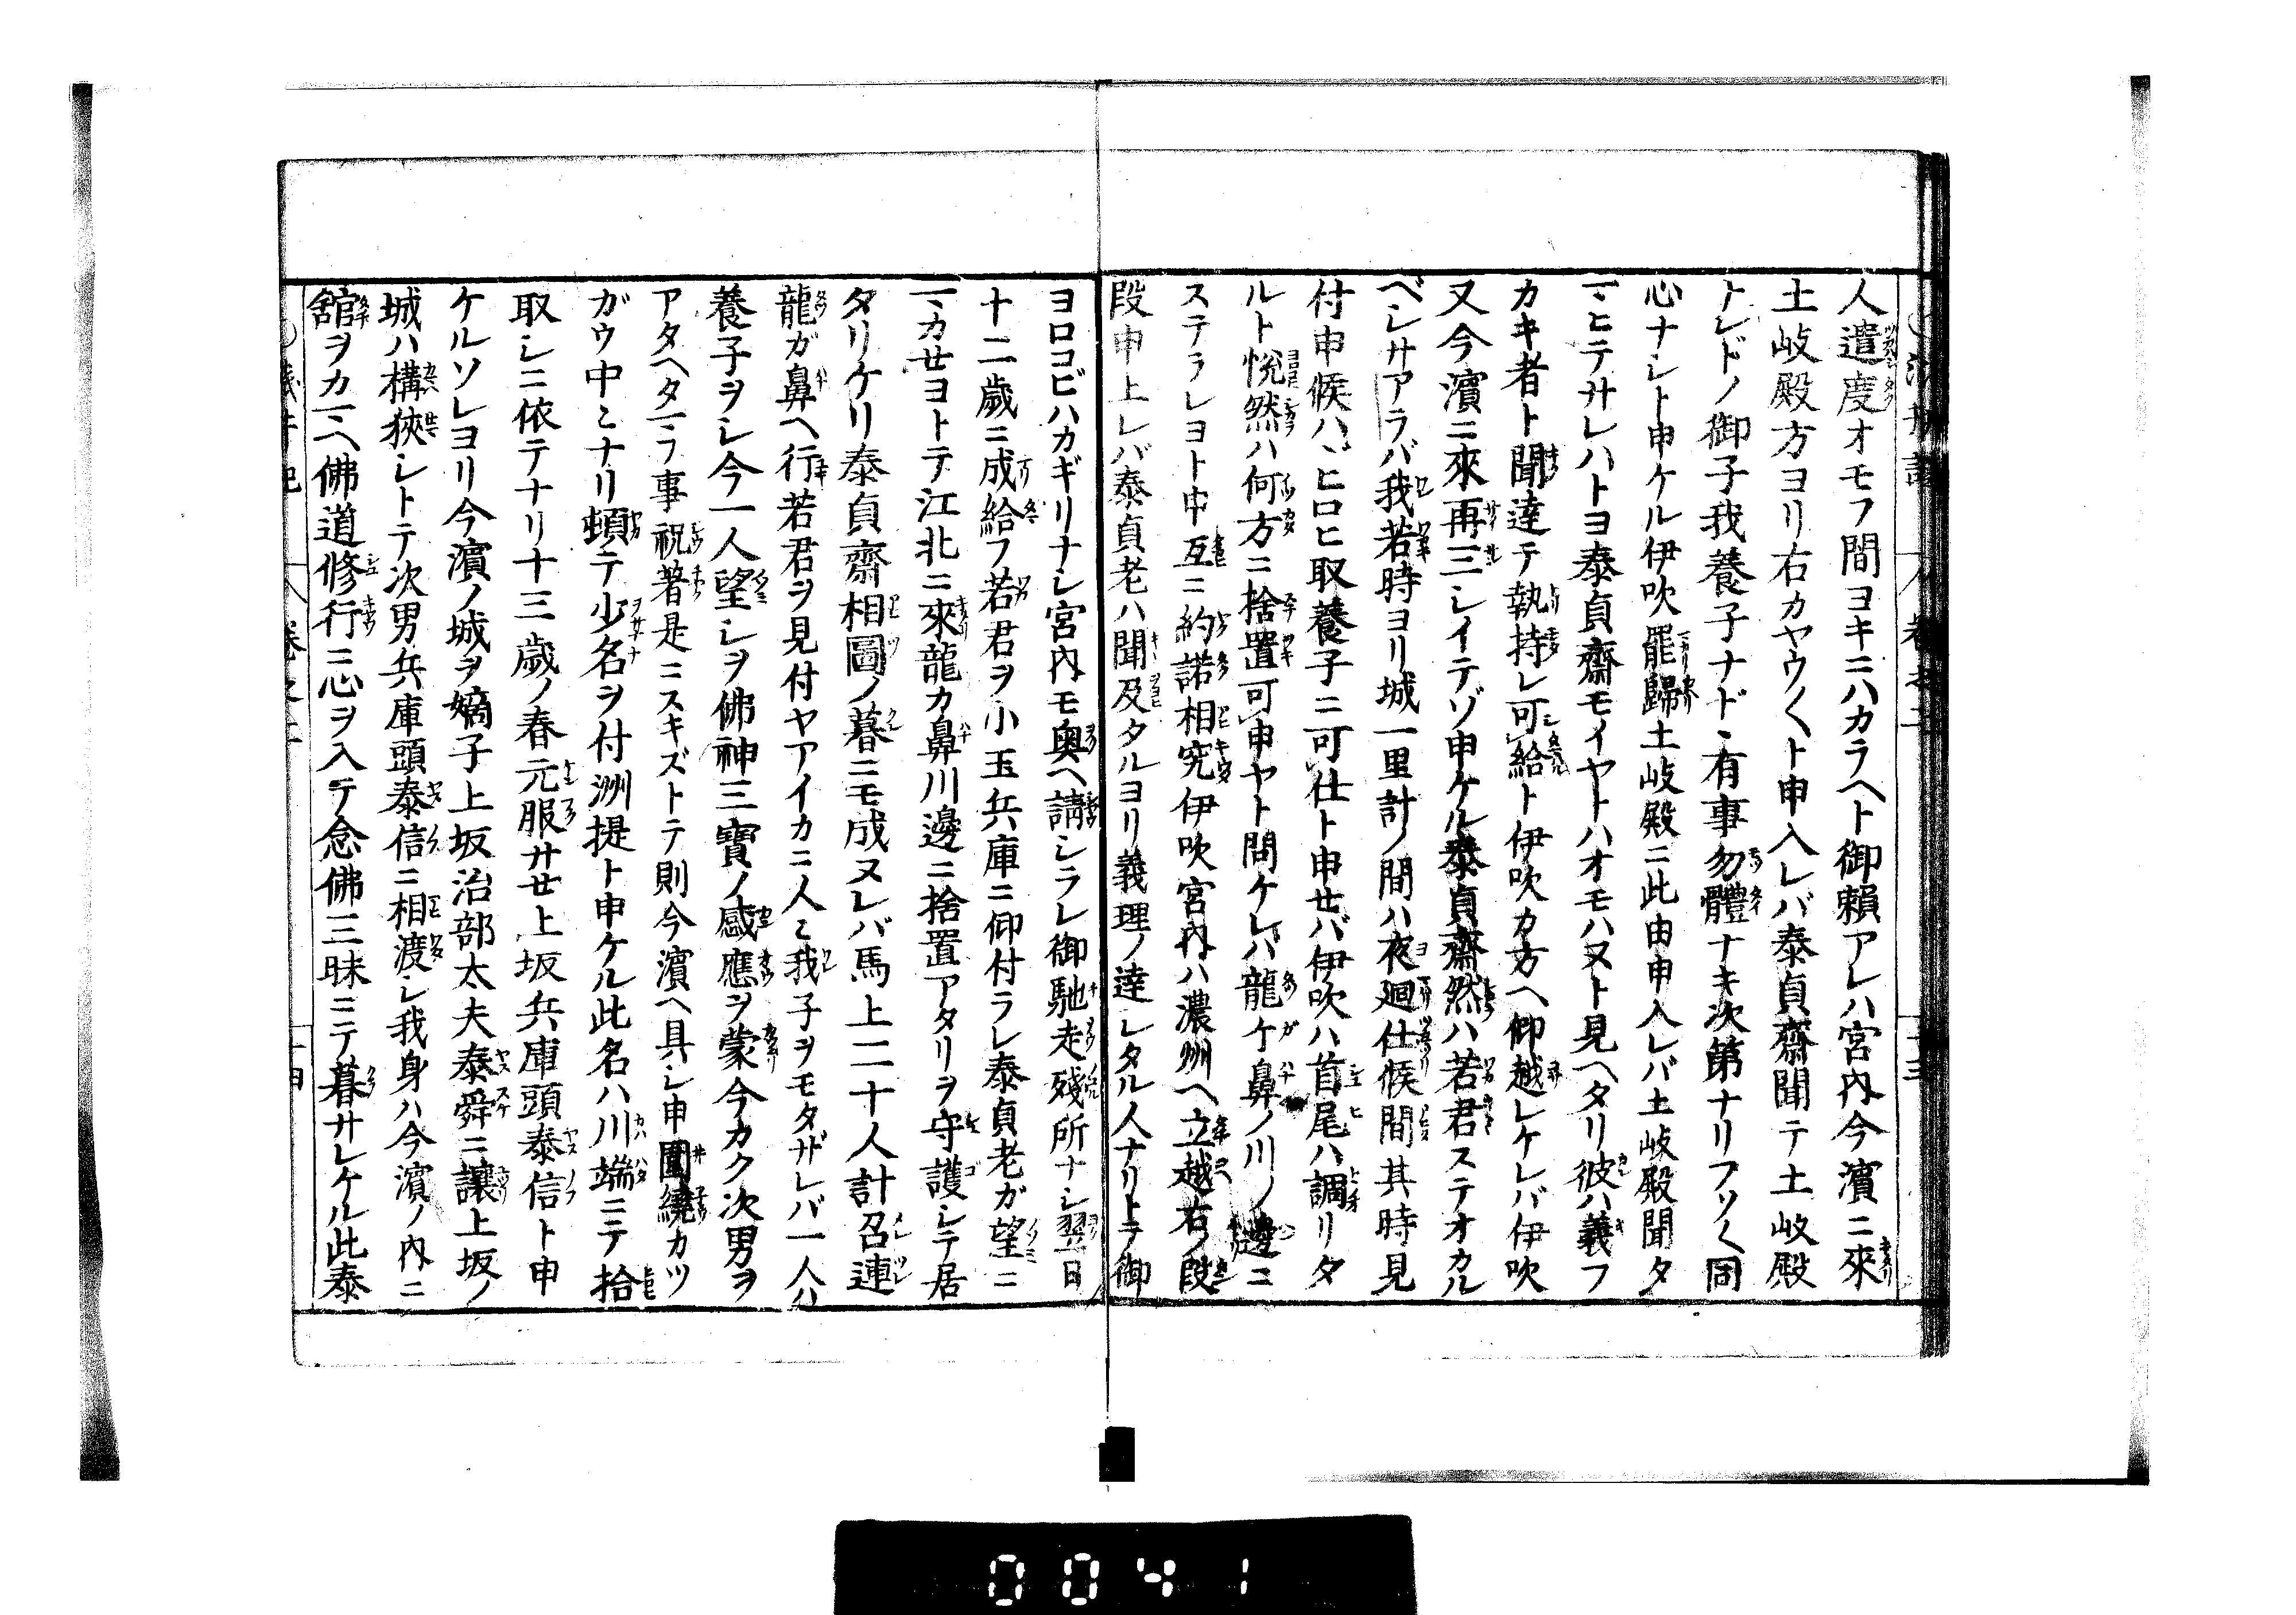 人遣度オモフ間ヨキニハカラヘト御頼アレハ宮内今濱ニ來
土岐殿方ヨリ右カヤウ〱ト申入レバ泰貞齋聞テ土岐殿
トレドノ御子我養子ナドヽ有事勿體ナキ次第ナリフツ〱同
心ナシト申ケル伊吹罷歸土岐殿ニ此由申入レバ土岐殿聞タ
マヒテサレハトヨ泰貞齋モイヤトハオモハヌト見ヘタリ彼ハ義フ
カキ者ト聞達テ執持レ可給ト伊吹カ方ヘ仰越レケレバ伊吹
又今濱ニ來再三シイテゾ申ケル泰貞齋然ハ若君ステオカル
ベシサアラバ我若時ヨリ城一里計ノ間ハ夜廻仕候間其時見
付申候ハヾヒロヒ取養子ニ可仕ト申セバ伊吹ハ首尾ハ調リタ
ルト悦然ハ何方ニ捨置可申ヤト問ケレバ龍ケ鼻ノ川ノ邊ニ
ステラレヨト申互ニ約諾相究伊吹宮内ハ濃州ヘ立越右ノ段
段申上レバ泰貞老ハ聞及タルヨリ義理ノ達シタル人ナリトテ御
ヨロコビハカギリナシ宮内モ奥ヘ請シラレ御馳走殘所ナシ翌日
十二歳ニ成給フ若君ヲ小玉兵庫ニ仰付ラレ泰貞老ガ望ニ
マカセヨトテ江北ニ來龍カ鼻川邊ニ捨置アタリヲ守護シテ居
タリケリ泰貞齋相圖ノ暮ニモ成ヌレバ馬上二十人計召連
龍ガ鼻ヘ行若君ヲ見付ヤアイカニ人ミ我子ヲモタザレバ一人ハ
養子ヲシ今一人望シヲ佛神三寶ノ感應ヲ蒙今カク次男ヲ
アタヘタマフ事祝著是ニスキズトテ則今濱ヘ具シ申圍繞カツ
ガウ中ミナリ頓テ少名ヲ付洲提ト申ケル此名ハ川端ニテ拾
取シニ依テナリ十三歳ノ春元服サセ上坂兵庫頭泰信ト申
ケルソレヨリ今濱ノ城ヲ嫡子上坂治部太夫泰舜ニ讓上坂ノ
城ハ構狹シトテ次男兵庫頭泰信ニ相渡シ我身ハ今濱ノ内ニ
舘ヲカマヘ佛道修行ニ心ヲ入テ念佛三昧ニテ暮サレケル此泰
0041